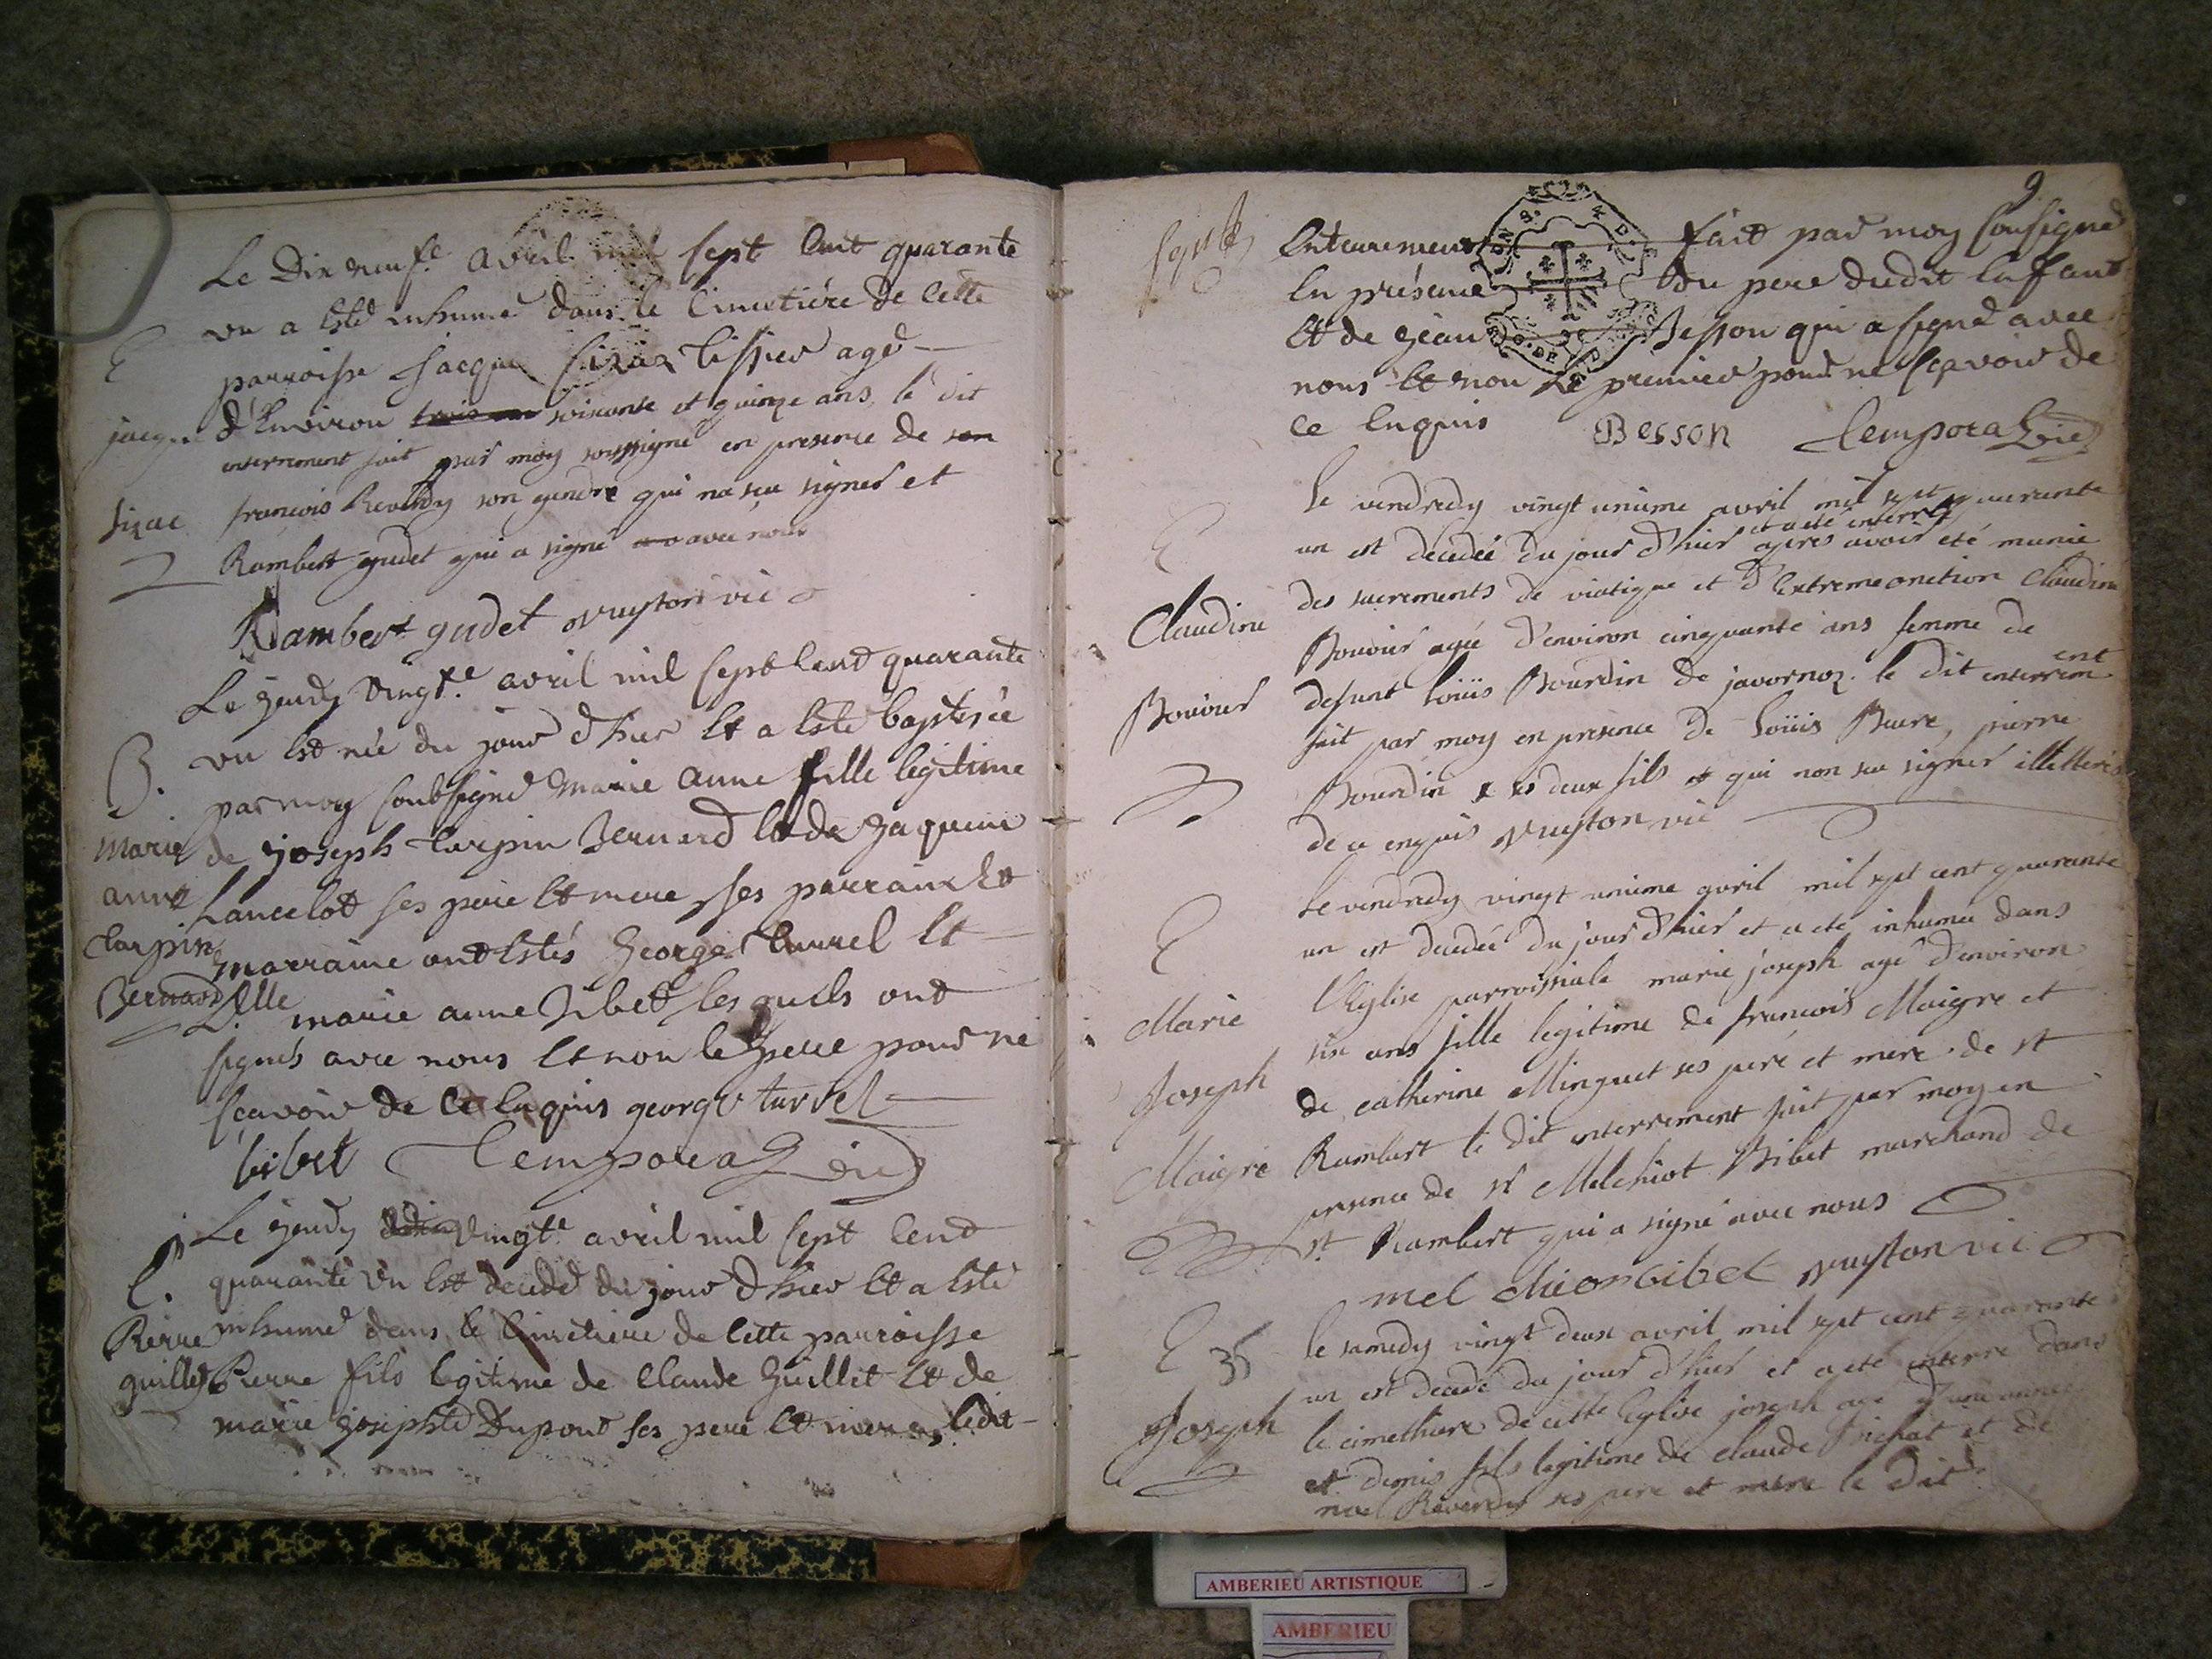 Le Dix neuf.e avril mil sept cent quarante
un a esté inhumé dans le Cimetiére de cette
E
parroisse Jacque Sirac tissier agé
jacque
d'Environ soixante et quinze ans, le dit
enterrement fait par moy soussigné en presence de son
sirac
francois Reverdy son gendre qui na sceu signer et
Rambert gudet qui a signé avec nous
Rambert gudet vuyton vic
Le jeudy vingt.e avril mil sept cent quarante
un est née du jour d'hier et a esté baptisée
B.
par moy soubsigné marie anne fille légitime
marie
de joseph tarpin Bernard et de Jaquine
anne
Lancelot ses pere et mere, ses parrain et
tarpin
marraine ont estés George turrel et
Bernard
D.elle marie anne Bibet lesquels ont
signés avec nous et non le pere pour ne
scavoir de ce enquis george turrel
bibet Temporal vic
Le jeudy vingt.e avril mil sept cent
E.
quarante un est decedé du jour d'hier et a esté
Pierre
inhumé dans le cimetiere de cette parroisse
guillet
Pierre fils legitime de Claude Guillet et de
marie josephte Dupont ses pere et mere, ledit
9
enterrement fait par moy soussigné
en présence du pere dudit enfant
et de jean Besson qui a signé avec
nous et non le premier pour ne sçavoir de
ce enquis Besson Temporal vic
Le vendredy vingt unieme avril mil sept quarante
E
un est decedée du jour d'hier et a eté enterré après avoir été munie
des sacrements de viatique et d'Extremeonction Claudine
Claudine
Bouvier agée d'environ cinquante ans femme de
Bouvier
defunt Loüis Bourdin de javornoz. le dit enterrement
fait par moy en presence de Loüis Buere, pierre
Bourdin ses deux fils qui non sceu signer illitteres
de ce enquis vuyton vic
Le vendredy vingt unieme avril mil sept cent quarante
E
un est decedée du jour d'hier et a eté inhumée dans
l'Eglise parroissiale marie joseph agé d'environ
Marie
six ans fille legitime de francois Maigre et
Joseph
de catherine Minguet ses pere et mere de st
Maigre
Rambert le dit enterrement fait par moy en
presence de sr Melchiot Bibet marchand de
st Rambert qui a signé avec nous
mel chior bibet vuyton vic
E 35
le samedy vingt deux avril mil sept cent quarante
un est decedé du jour d'hier et a eté enterré dans
Joseph
le cimethiere de cette Eglise joseph agé d'une année
et demis fils legitime de claude et de
Reverdy ses pere et mere le dit
AMBERIEU ARTISTIQUE
AMBERIEU